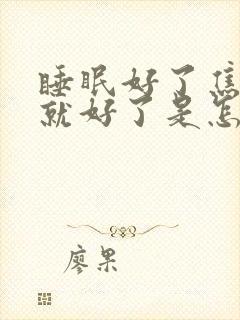 睡眠好了焦
就好了是怎
廖果